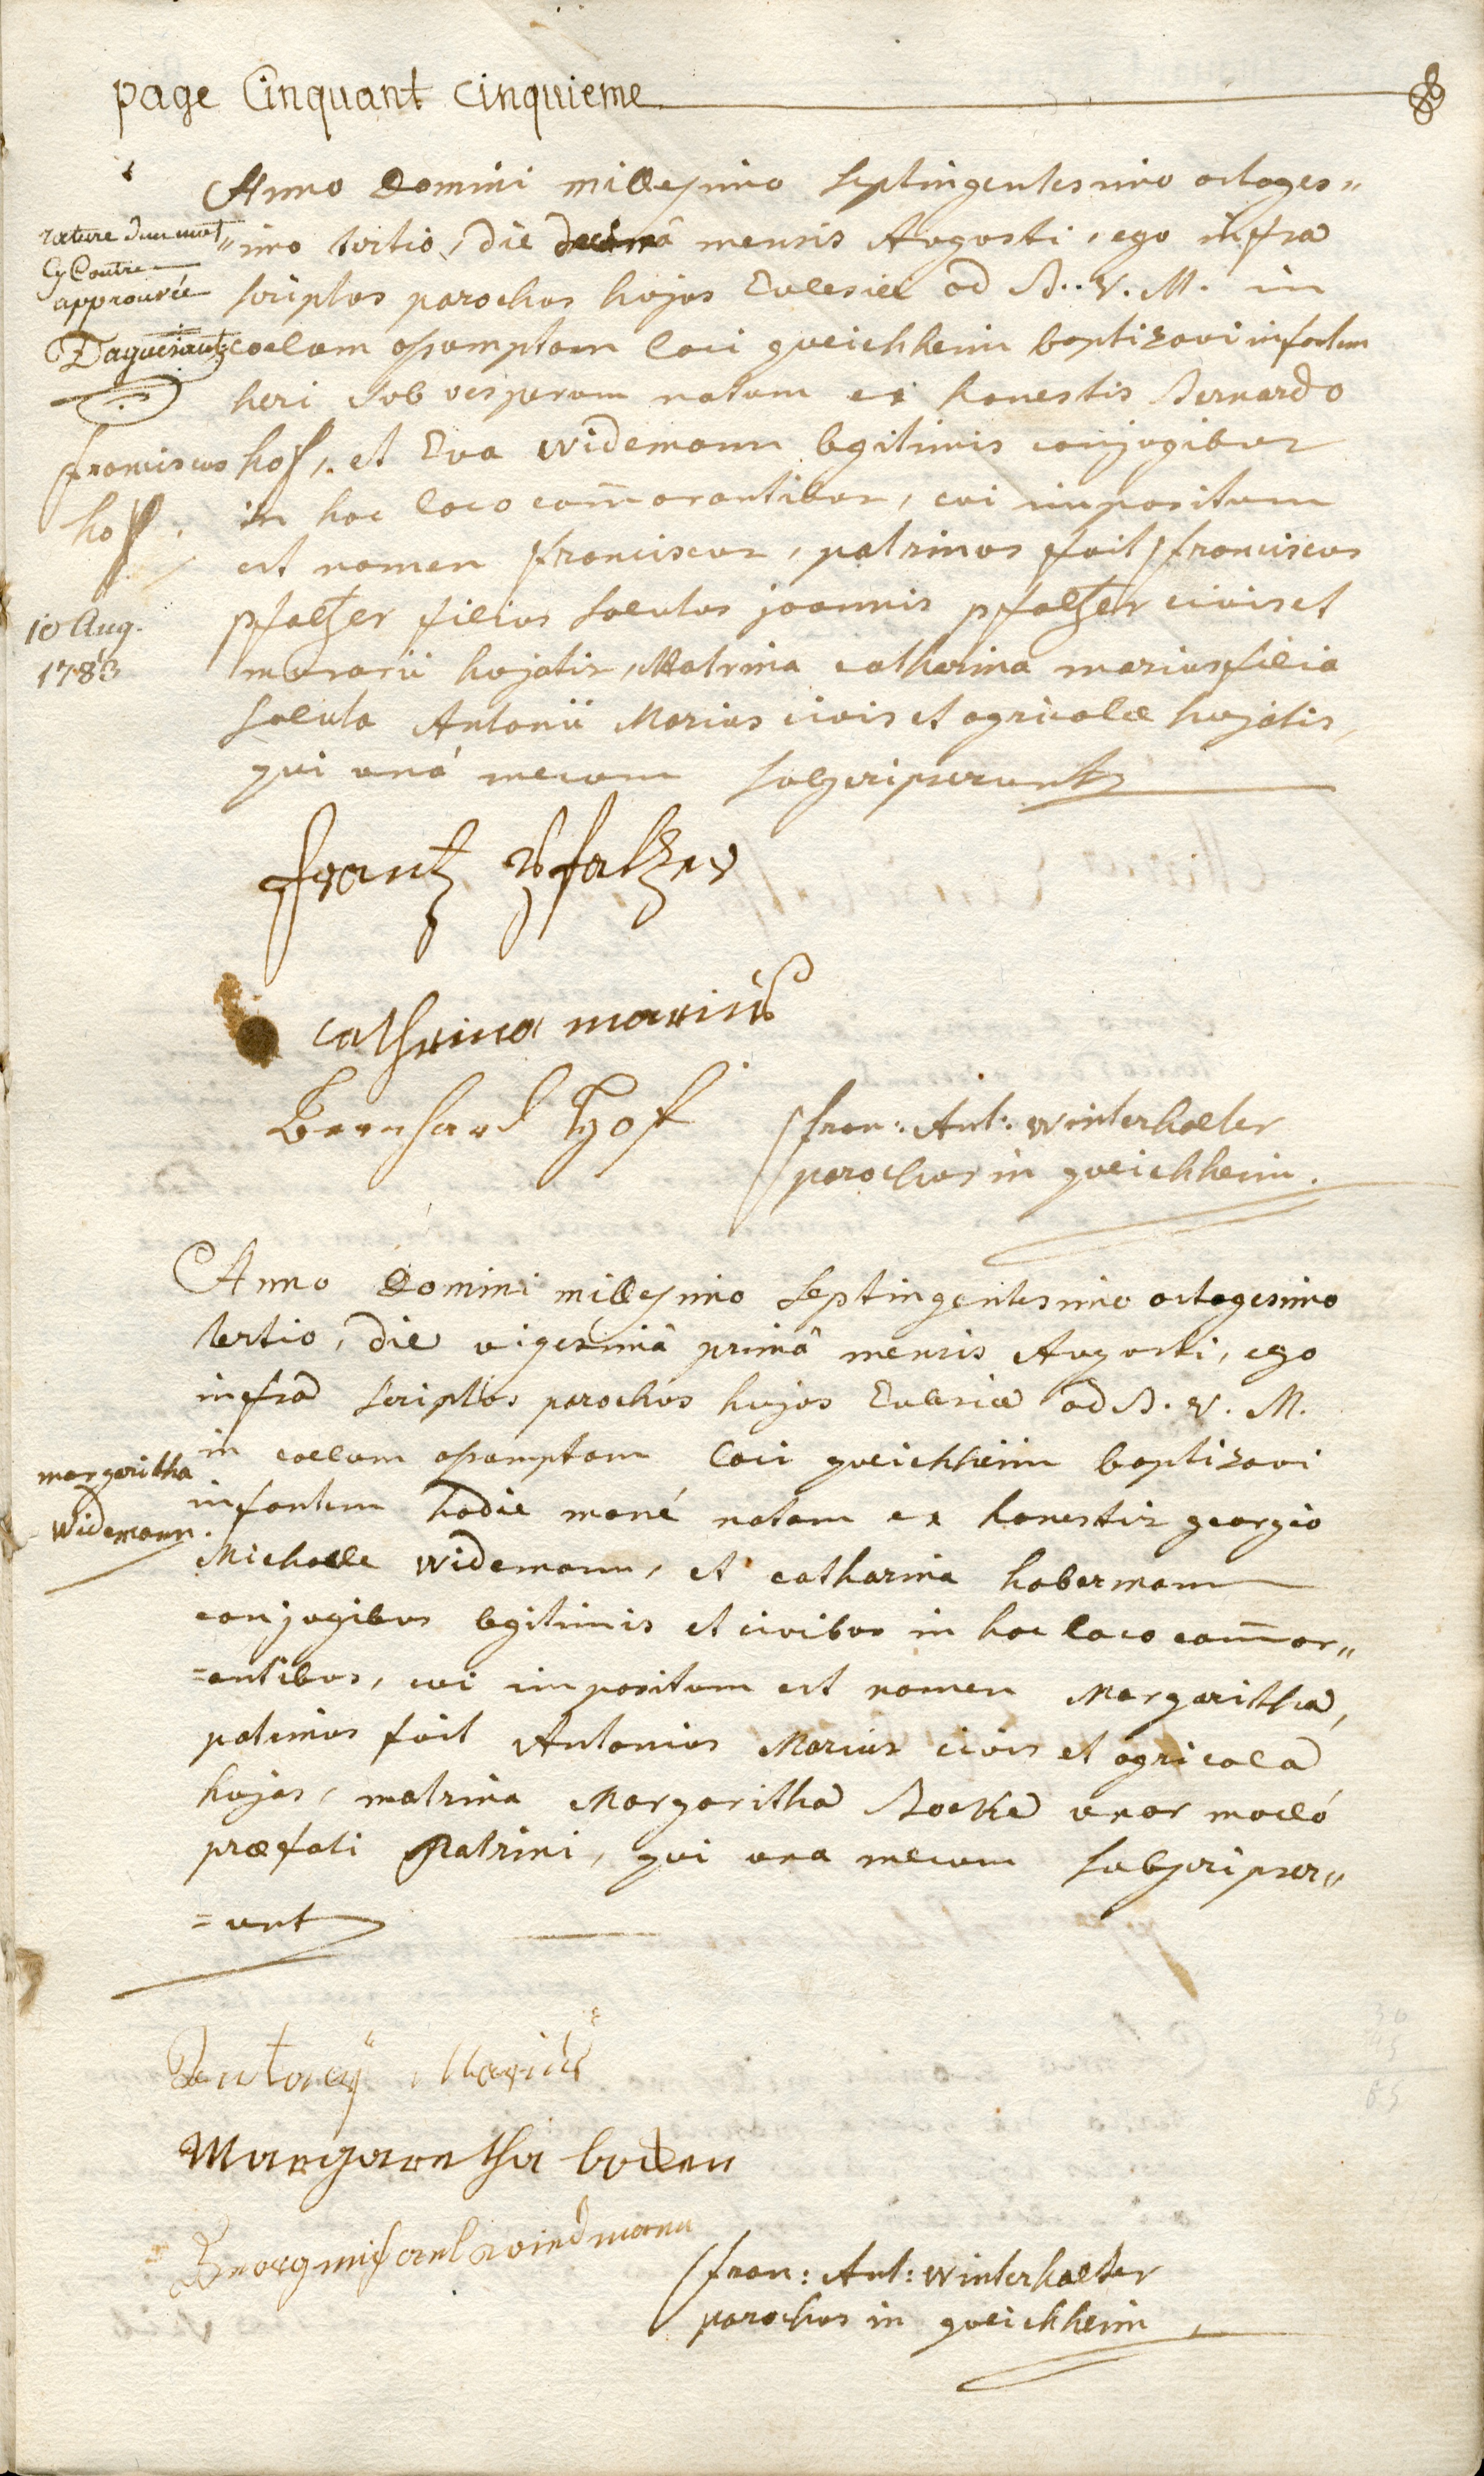 page Cinquant cinquieme
Anno Domini millesimo septingentesimo octoges„
rature d'un mot
cy Contre
approuvée
Daguesautz
„imo tertio, die decimâ mensis Augusti, ego infra
scriptus parochus hujus Ecclesiæ ad B. V. M. in
coelum assumptam loci gleichheim baptizavi infantem
heri sub vesperam natum ex honestis Bernardo
franciscus
hoff.
hoff, et Eva Widemann legitimis conjugibus
in hoc loco com̅orantibus, cui impositum
est nomen franciscus, patrinus fuit franciscus
10 Aug.
1783
pfaltzer filius solutus joannis pfaltzer civis et
murarii hujatis, Matrina catharina marius filia
soluta Antonii Marius civis et agricolæ hujatis,
qui unà mecum subscripserunt
frantz pfaltzer
cathrina marius
Bernhard Hof
fran: Ant: Winterhalter
parochus in gleichheim.
Anno Domini millesimo septingentesimo octogesimo
tertio, die vigesimâ primâ mensis Augusti, ego
infra scriptus parochus hujus Ecclesiæ ad B. V. M.
in coelum assumptam loci gleichheim baptizavi
margaritha
Widemann.
infantem hodie mané natam ex honestis georgio
Michaele Widemann, et catharina habermann
conjugibus legitimis et civibus in hoc loco com̅or„
=antibus, cui impositum est nomen Margaritha,
patrinus fuit Antonius Marius civis et agricola
hujas, matrina Margaritha Bocke uxor
præfati Patrini, qui una mecum subscripser„
=unt
Antony Marius
Margaretha bocken
Georg michael wiedmann
fran: Ant: Winterhalter
parochus in gleichheim